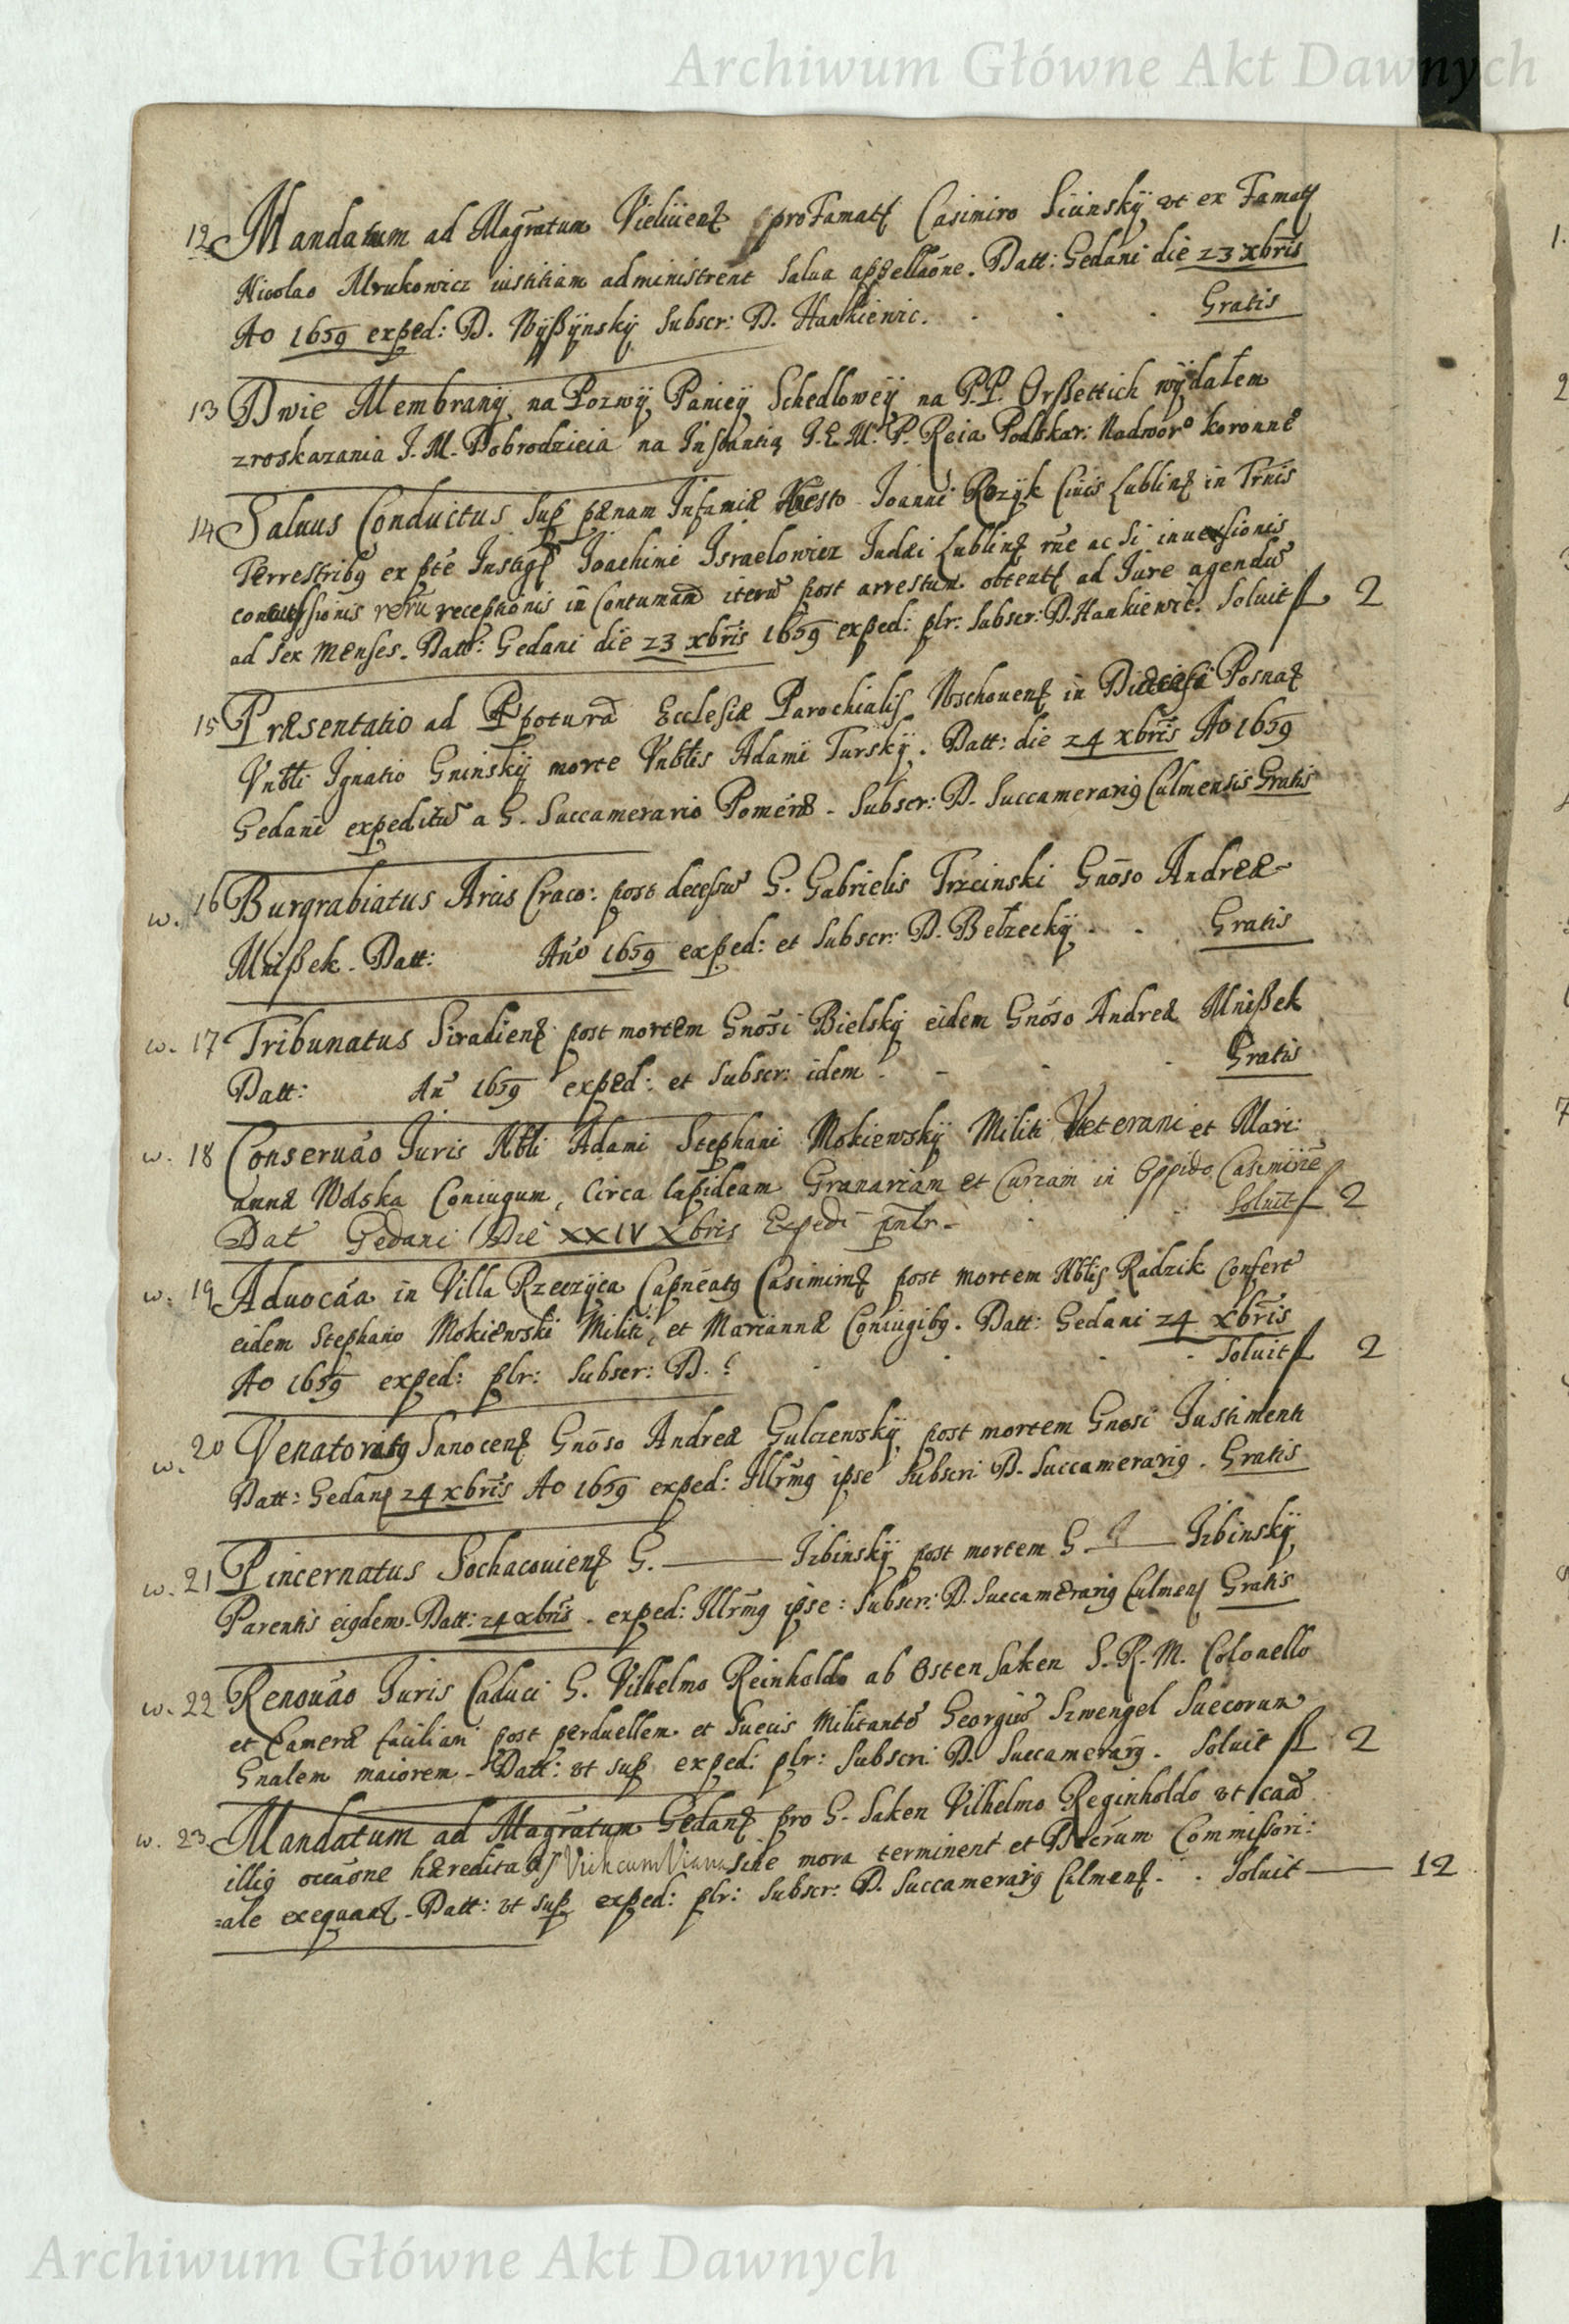 Archiwum Główne Akt Dawnych
12 Mandatum ad Magratum Vieliien proFamat Casimiro Siuinskÿ vt ex Famat
Nicolao Mrukowicz iustitiam administrent salua appellaõne. Datt: Gedani die 23 xbris
Ao 1659 exped: D. Wÿßÿnskÿ Subscr: D. Hankiewic. Gratis
13 Dwie Membranÿ na Pozwÿ Panieÿ Schedloweÿ na P.P. Orßettich wÿdałem
zroskazania J.M. Dobrodzieia na Instantią J.E.M. P. Reia Podskar: Nadworº koronnē
14 Saluus Conductus sup pænam Infamiæ Hnesto Joanni Rozÿk Ciuis Lublin in Trnis
Terrestribq ex pte Instig Joachimi Israelowicz Judæi Lublin rñe ac si inuasionis
concussionis rerũ receptionis in Contumam iterũ post arrestum obtent ad Jure agendũ
ad sex menses. Datt: Gedani die 23 xbris 1659 exped: plr: subscr: D. Hankiewic. Soluit f 2
15 Præsentatio ad Ppoturam Ecclesiæ Parochialis Wschouen in Diæcesi Posnan
Vnbli Ignatio Gninskÿ morte Vnblis Adami Turskÿ. Datt: die 24 xbris Ao 1659
Gedani expeditũ a G. Succamerario Pomeræ. Subscr: D. Succamerariq Culmensis Gratis
w. 16 Burgrabiatus Arcis Craco: post decessũ G. Gabrielis Trzcinski Gnõso Andreæ
Mnißek. Datt: Año 1659 exped: et Subscr: D. Bełzeckÿ. Gratis
w. 17 Tribunatus Siradien post mortem Gnõsi Bielskÿ eidem Gnõso Andreæ Mnißek
Datt: Añ 1659 exped: et Subscr: idem. Gratis
w. 18 Conseruão Juris Nbli Adami Stephani Mokiewskÿ Militi Veterani et Mari:
annæ Wolska Coniugum, Circa lapideam Granariam et Curiam in Oppido Casimiriẽ
Dat Gedani Die XXIV Xbris Expedi pntr. Soluit f 2
w. 19 Aduocãa in Villa Rzeczÿca Capneatq Casimirien post mortem Nblis Radzik Confert
eidem Stephano Mokiewski Militi, et Mariannæ Coniugibq. Datt: Gedani 24 xbris
Ao 1659 exped: plr: Subscr: D. ? Soluit f 2
w. 20 Venatoriatq Sanocen Gnõso Andreæ Gulczewskÿ, post mortem Gnosi Justimenti
Datt: Gedani 24 xbris Ao 1659 exped: Illrmq ipse Subscri D. Succamerariq. Gratis
w. 21 Pincernatus Sochacouien G. — Izbinskÿ post mortem G — Izbinskÿ
Parentis eiqdem. Datt: 24 xbris. exped: Illrmq ipse: Subscr: D. Succamerariq Culmen Gratis
w. 22 Renouão Juris Caduci G. Vilhelmo Reinholdo ab Osten Saken S.R.M. Colonello
et Cameræ post perduellem et Suecis Militantẽ Georgiũ Szwengel Suecorum
Gnalem maiorem. Datt: vt sup exped: plr: Subscri D. Succamerariq. Soluit f 2
w. 23. Mandatum ad Magratum Gedan pro G. Saken Vilhelmo Reginholdo vt cam
illiq occaõne hæreditat sine mora terminent et Decrum Commissori:
=ale exequant. Datt: vt sup exped: plr: Subscr: D. Succamerariq Culmen. Soluit — 12
Archiwum Główne Akt Dawnych